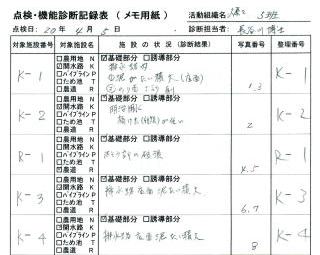 点検・機能診断記録表（メモ用紙）
活動組織名
点検日: 20年 4月 5日
診断担当者: 長谷川博士
対象施設番号 対象施設名 施設の状況（診断結果） 写真番号 整理番号
K-1
□農用地 N
☑開水路 K
□パイプライン P
□ため池 T
□農道 R
☑基礎部分 □誘導部分
1.3
K-1
K-2
□農用地 N
☑開水路 K
□パイプライン P
□ため池 T
□農道 R
☑基礎部分 □誘導部分
2
K-2
R-1
□農用地 N
□開水路 K
□パイプライン P
□ため池 T
☑農道 R
☑基礎部分 □誘導部分
4.5
R-1
K-3
□農用地 N
☑開水路 K
□パイプライン P
□ため池 T
□農道 R
☑基礎部分 □誘導部分
排水路左岸泥たい積大
6.7
K-3
K-4
□農用地 N
☑開水路 K
□パイプライン P
□ため池 T
□農道 R
☑基礎部分 □誘導部分
排水路左岸泥たい積大
8
K-4